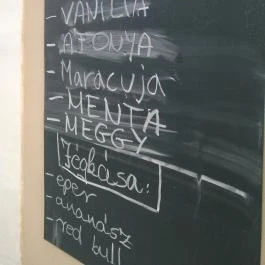 - VANÍLIA
- ÁFONYA
- Maracuja
- MENTA
- MEGGY
Jégkása:
- eper
- ananász
- red bull